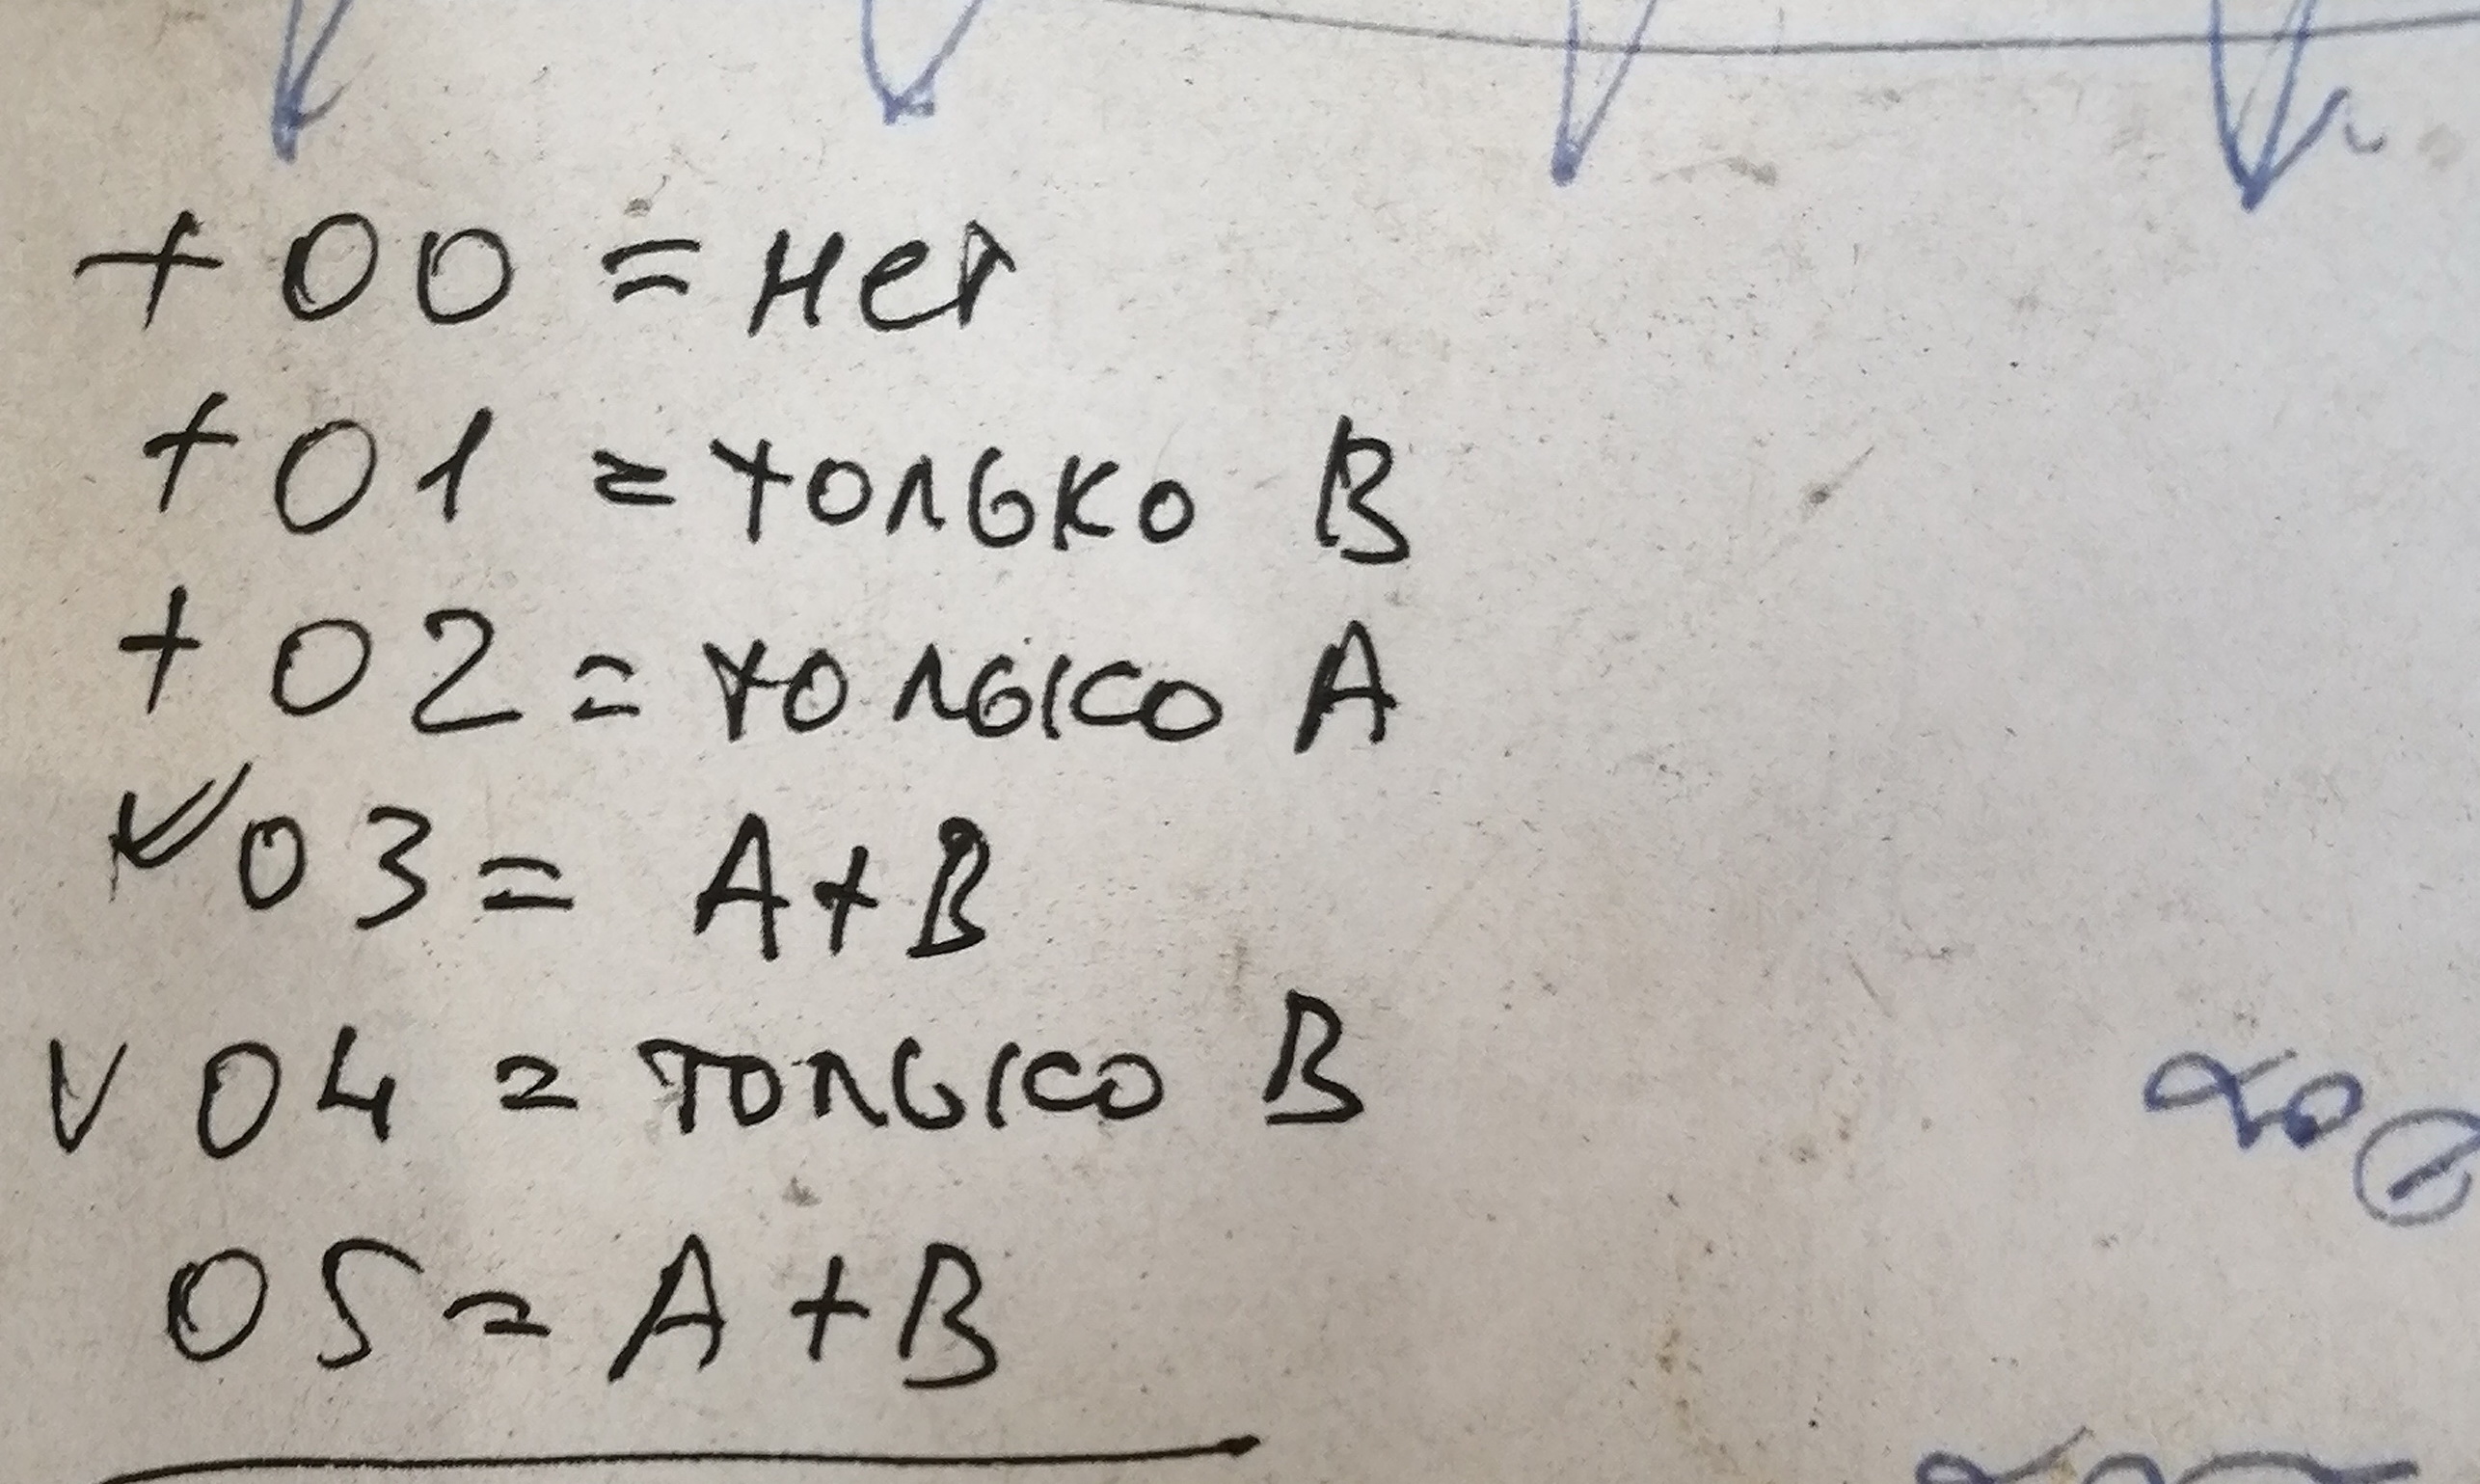 + 00 = нет
+ 01 = только В
+ 02 = только А
✓ 03 = А+В
✓ 04 = только В
05 = А+В